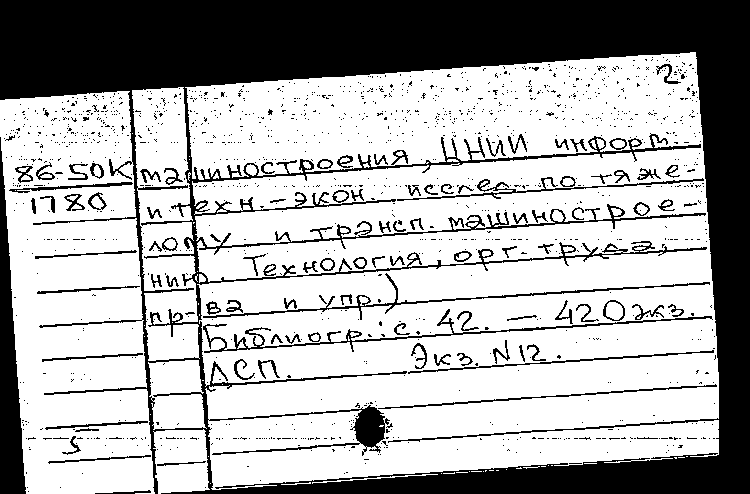 2
86-50К машиностроения, ЦНИИ информ.
1780 и техн.-экон. исслед. по тяже-
лому и трансп. машинострое-
нию. Технология, орг. труда,
пр-ва и упр.).
Библиогр.: с. 42. — 420 экз.
ДСП. Экз. N12.
5